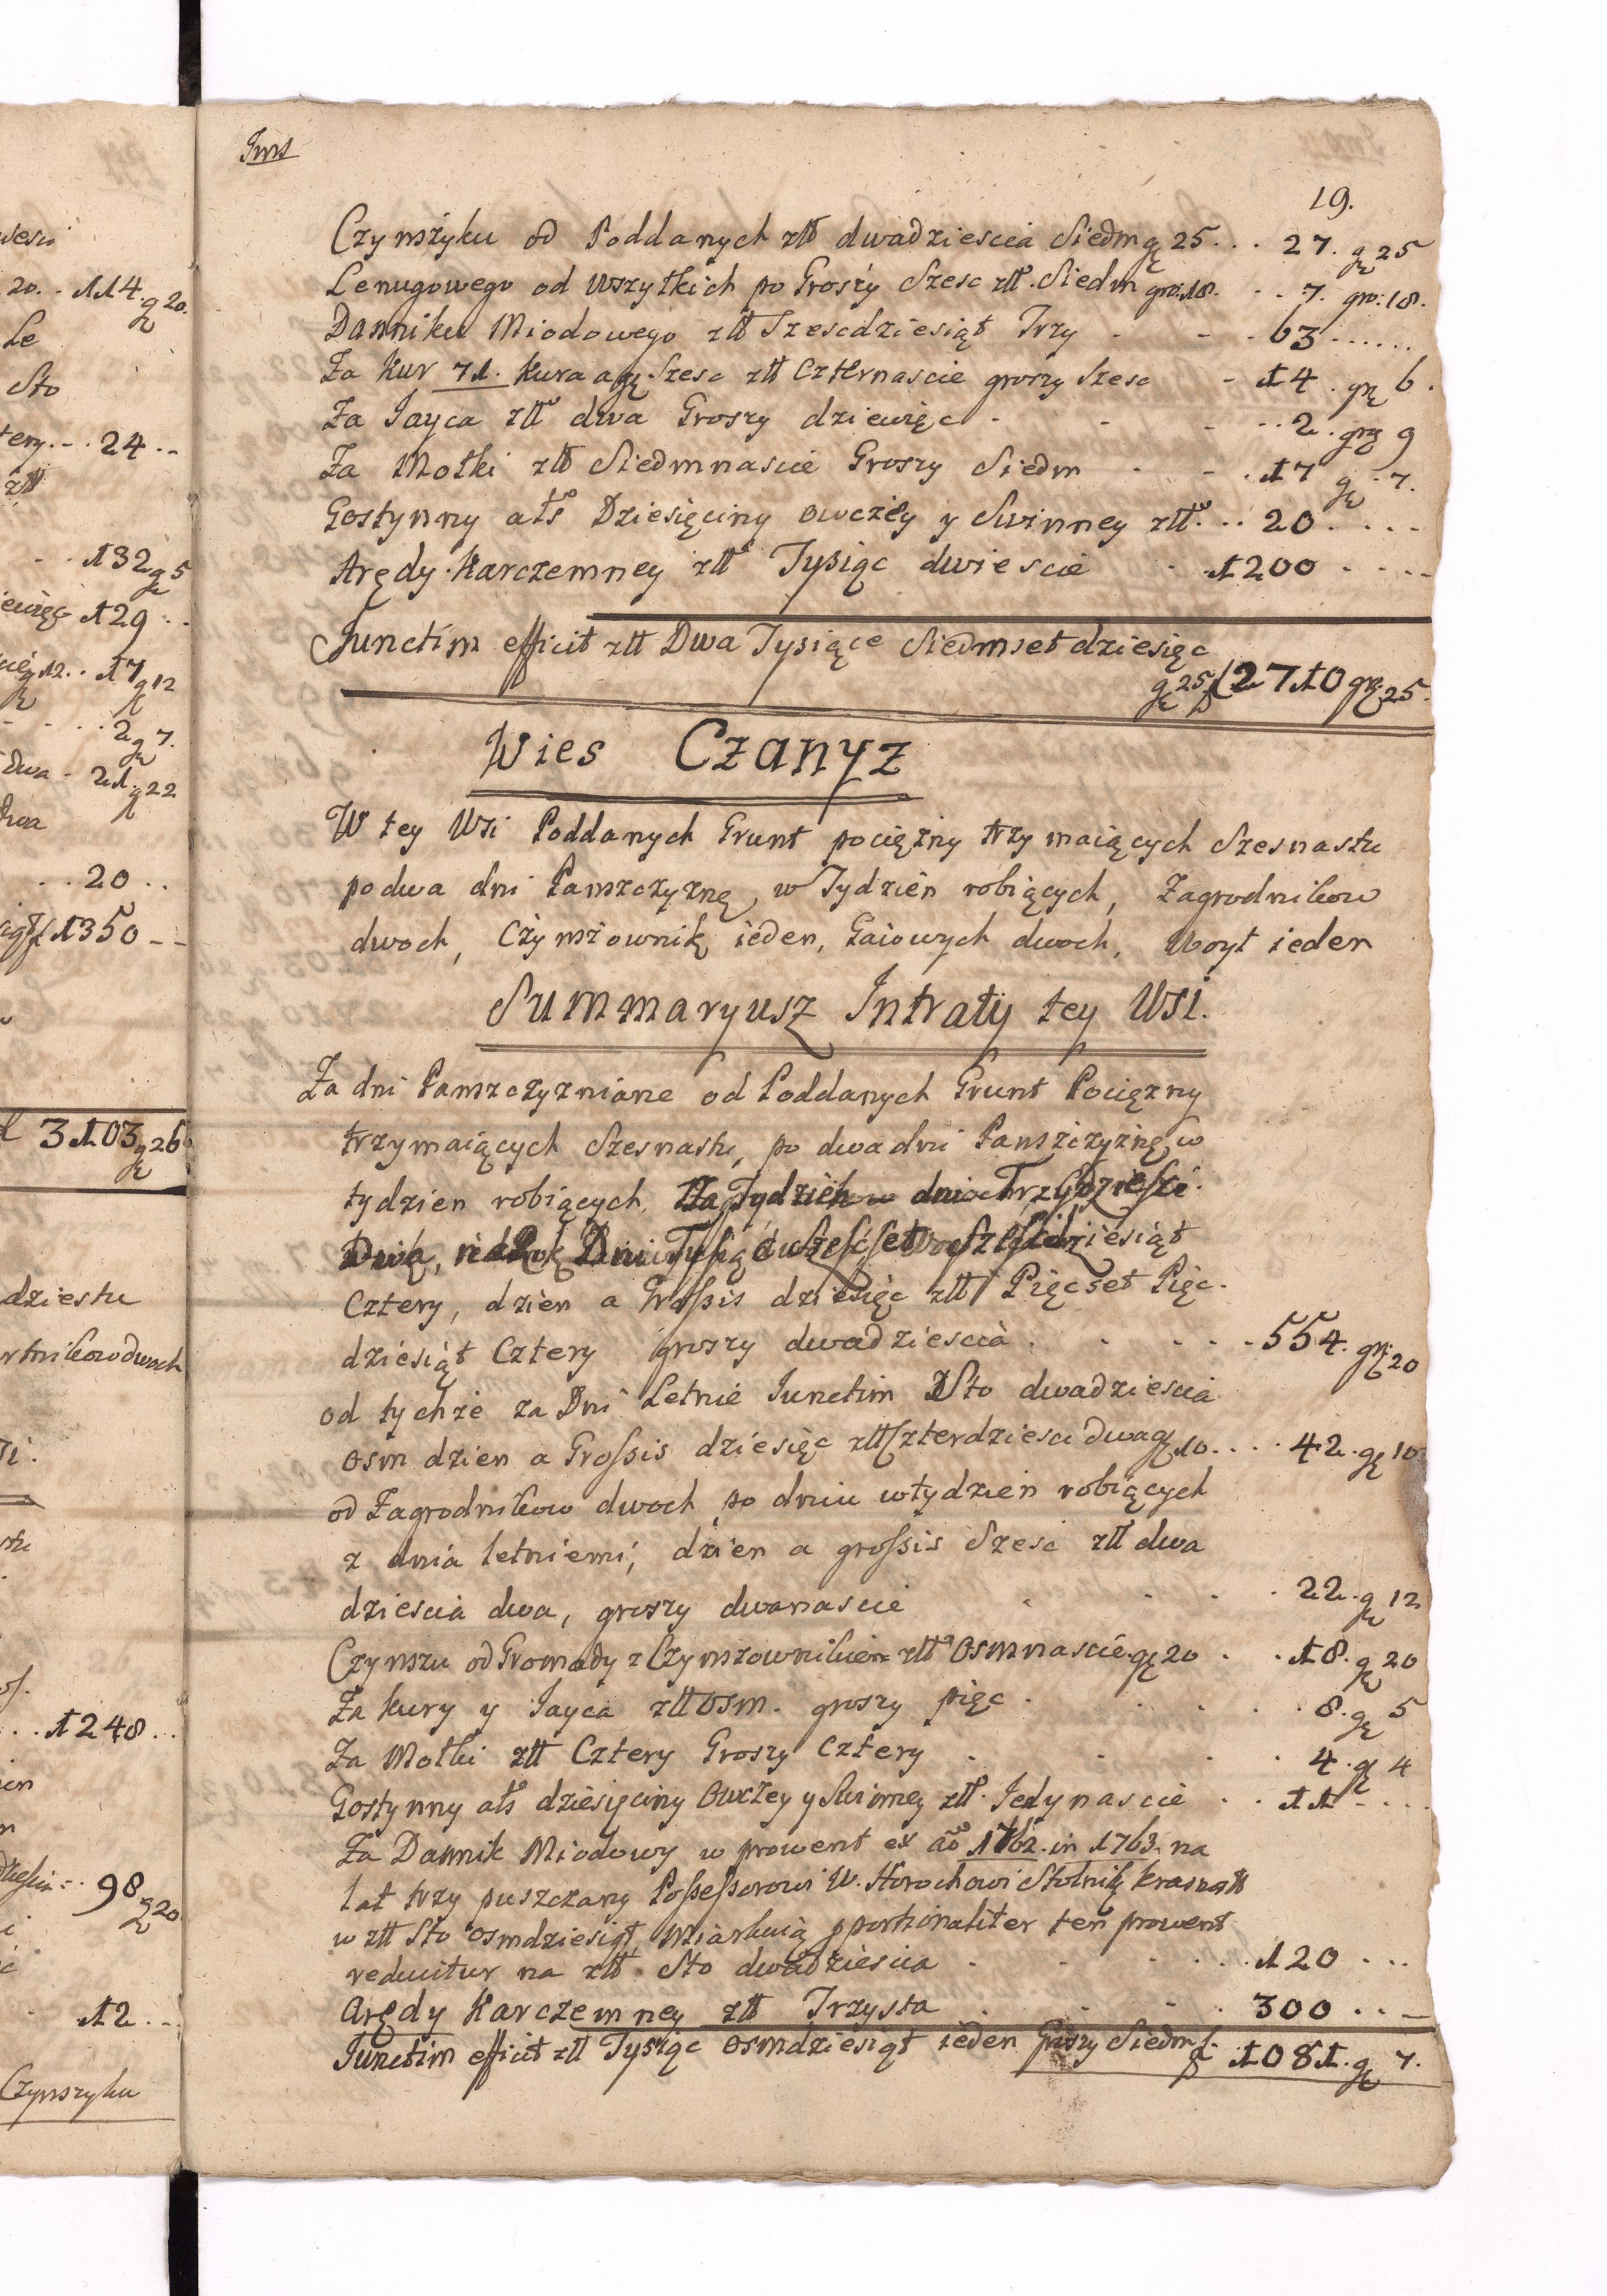 Jms
19.
Czynszyku od Poddanych złł dwadziescia Siedm gr 25 . . . 27. gr 25
od wszytkich po Groszy Szesc złł. Siedm gro: 18. . . . 7. gro: 18.
Danniku Miodowego złł Szescdziesiąt Trzy . - - 63 . . . . . .
Za Kur 71. Kura a gr. Szesc złł Czternascie groszy Szesc - 14. gr 6.
Za Jayca złł dwa Groszy dziewięc . - - . . 2. grg 9
Za Motki złł Siedmnascie Groszy Siedm - - . 17 gr 7.
Gostynny als Dziesięciny owczey y Swinney złł. . . 20. . . .
Arędy Karczemney złł Tysiąc dwiescie . 1200 . . . .
Junctim efficit złł Dwa Tysiące Siedmset dziesięc
gr 25 f 2710 gr. 25.
Wies Czanyz
W tey Wsi Poddanych Grunt pociężny trzymaiących Szesnastu
po dwa dni Panszczyznę w Tydzien robiących, Zagrodnikow
dwoch, Czynszownik ieden, Gaiowych dwoch, Woyt ieden
Summaryusz Intraty tey Wsi.
Za dni Panszczyzniane od Poddanych Grunt Pociężny
trzymaiących Szesnastu, po dwa dni Panszczyznę w
tydzien robiących, Na Tydzien dni Trzydziesci
Dwa, na Rok Dni Tysiąc Szescset Szescdziesiąt
Cztery, dzien a Grossis dziesięc złł Pięcset Pięc-
dziesiąt Cztery groszy dwadziescia . . . . . 554. gr. 20
od tychże za Dni Letnie Junctim Sto dwadziescia
osm dzien a Grossis dziesięc złł Czterdziesci dwa gr 10. . . . 42. gr 10
od Zagrodnikow dwoch po dniu w tydzien robiących
z dnia letniemi, dzien a grossis Szesc złł dwa
dziescia dwa, groszy dwanascie . . . . 22. gr 12
Czynszu od Gromady z Czynszownikiem złł Osmnascie. gr 20 . . 18. gr 20
Za kury y Jayca złł osm. groszy pięc . . . . 8. gr 5
Za Motki złł Cztery Groszy Cztery . . . . 4. gr 4
Gostynny als dziesięciny Owczey y Swinney złł. Jedynascie . . 11 . . . .
Za Dannik Miodowy w prowent ex ao 1762. in 1763. na
lat trzy puszczany Possessorowi W. Horochowi Stolnik
w złł Sto osmdziesiąt Miarkuią pportionaliter ten prowent
reducitur na złł. Sto dwadziescia . . . . . 120 . . .
Arędy Karczemney złł Trzysta . . . . 300 . . _
Junctim efficit złł Tysiąc osmdziesiąt ieden Groszy Siedm f. 1081. gr 7.
20. . 114. gr 20.
Le
Sto
tery. - . 24 . .
złł
. . 132 gr 5
129 . .
gr 12. . 17 gr 12
. . . 2 gr 7.
dwa . 21. gr 22
. . 20 . .
f 1350 - -
3103 gr 26
dziestu
dwoch
. . 1248 . . .
98 gr 20
12 . .
Czynszyku